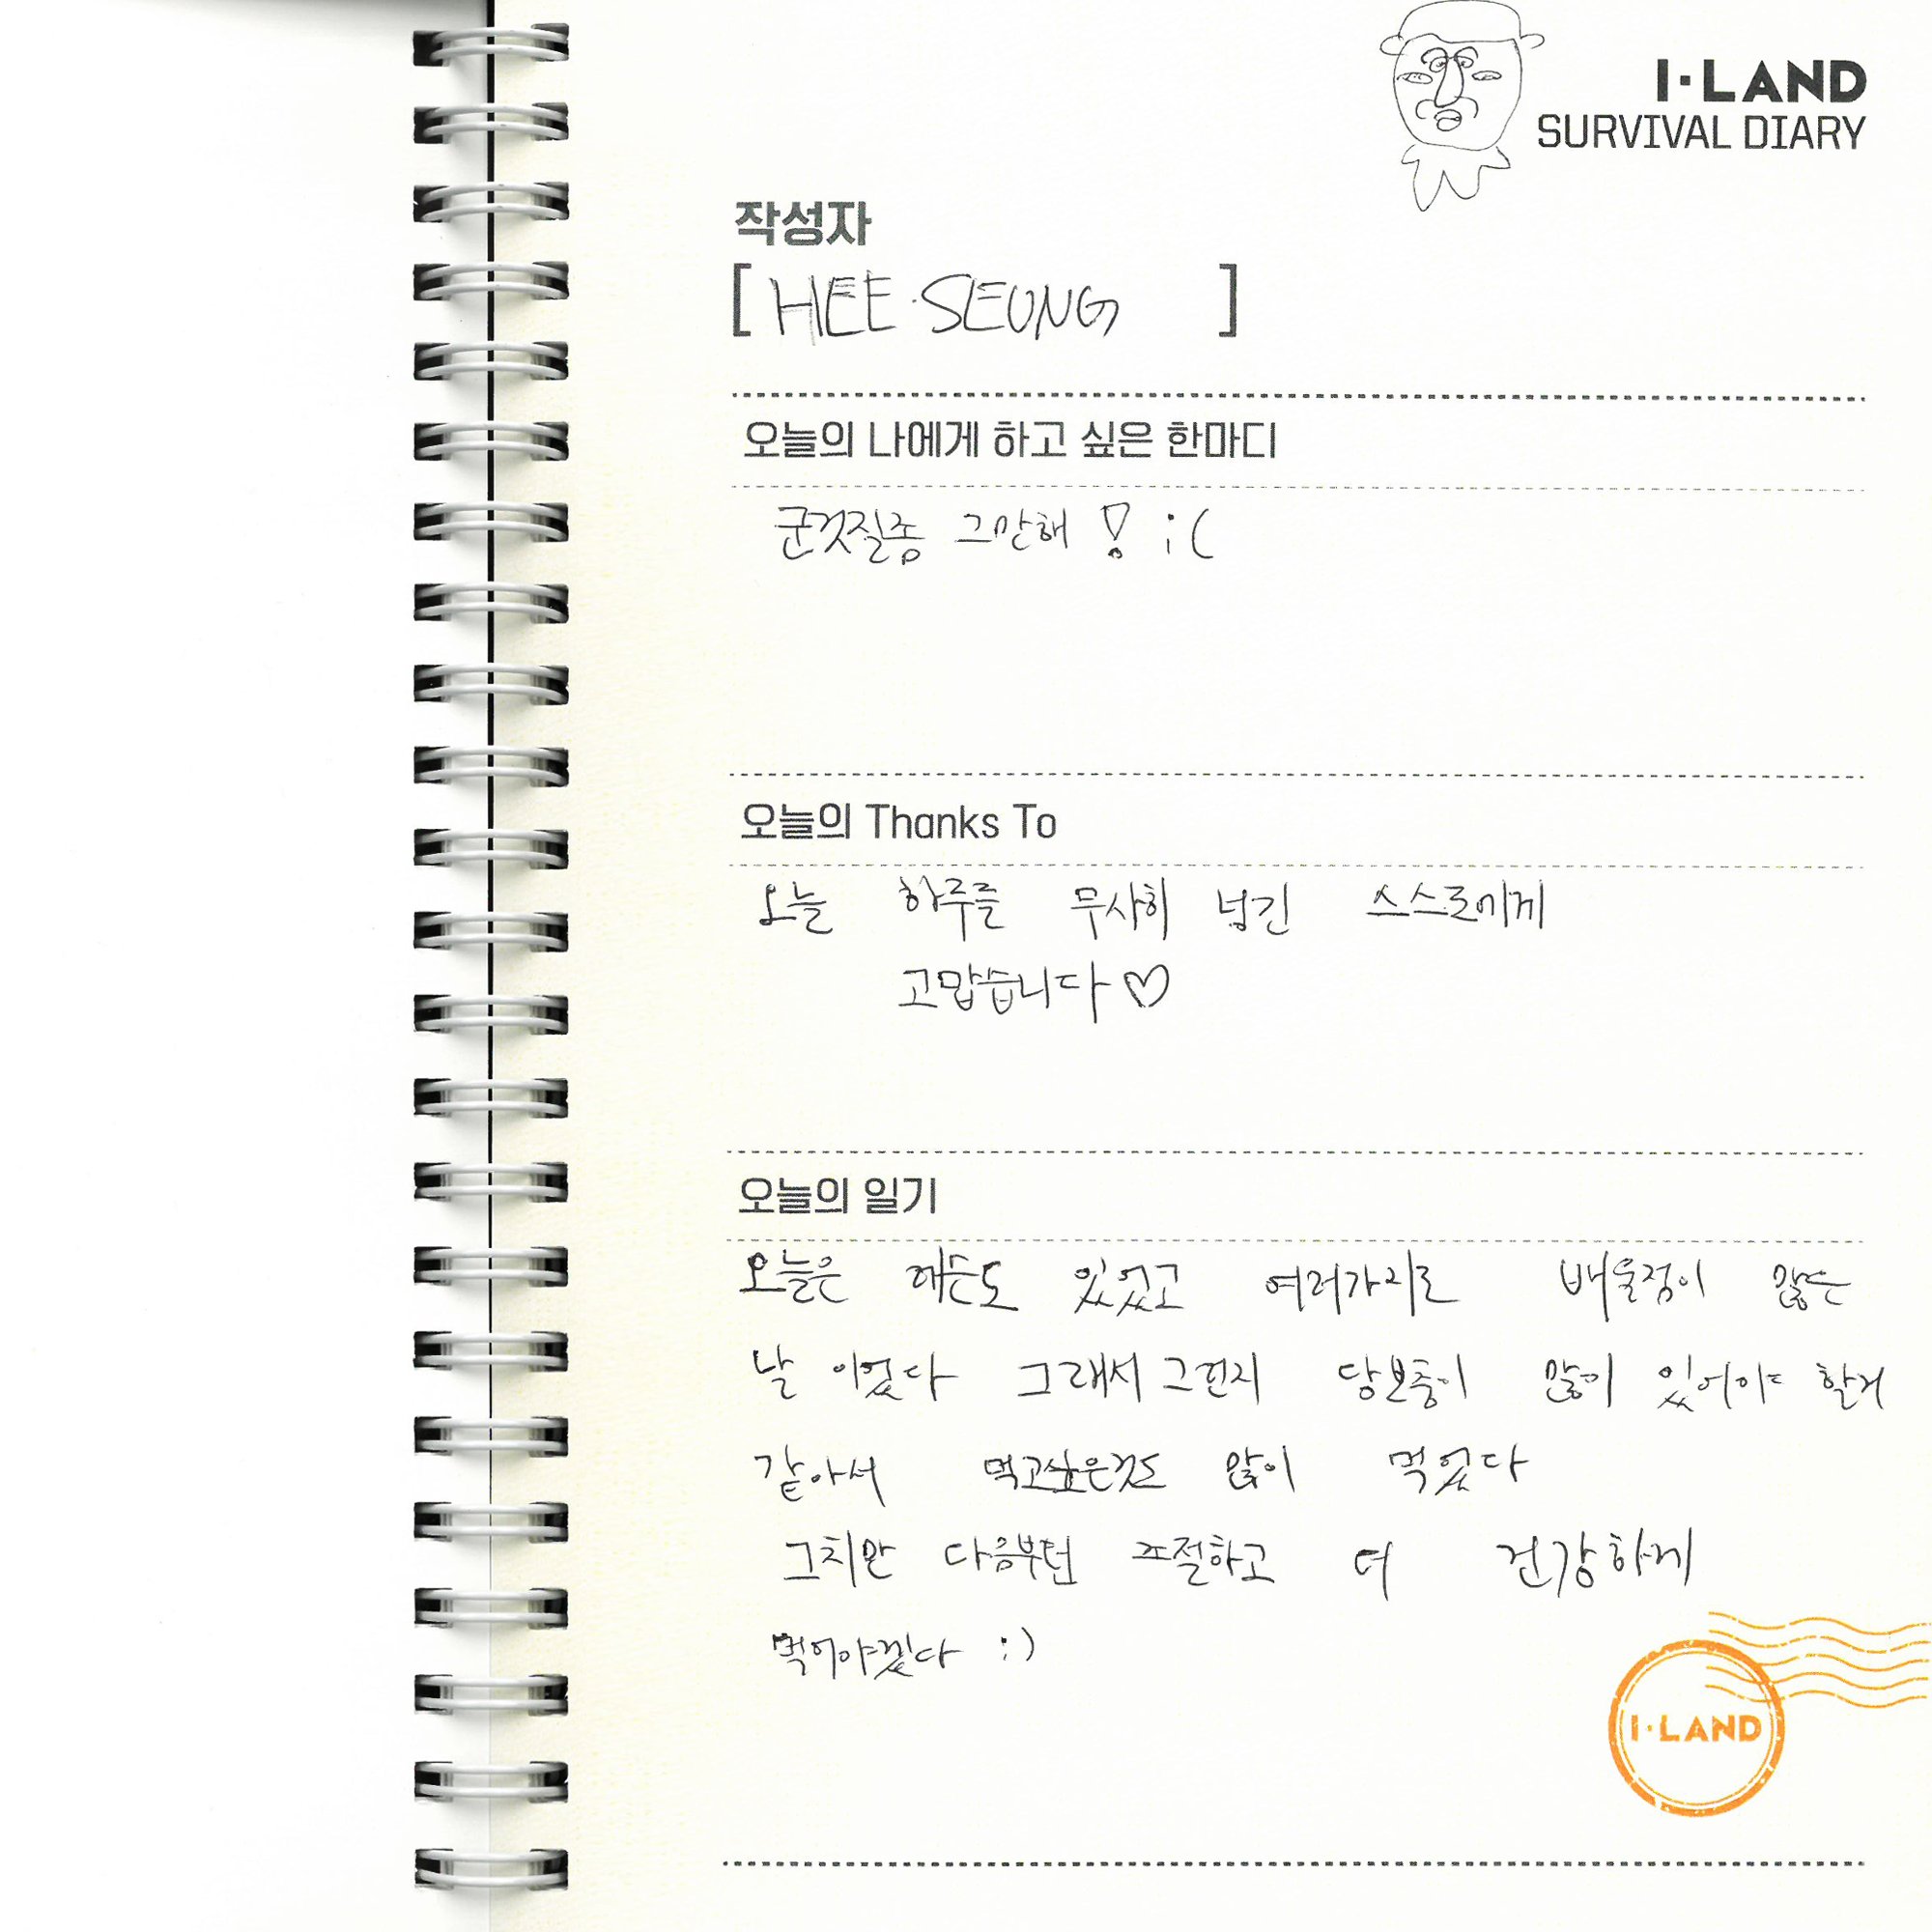 I·LAND
SURVIVAL DIARY
작성자
[ HEE SEUNG ]
오늘의 나에게 하고 싶은 한마디
군것질좀 그만해 ! ;(
오늘의 Thanks To
오늘 하루를 무사히 넘긴 스스로에게
고맙습니다 ♡
오늘의 일기
오늘은 레슨도 있었고 여러가지로 배울점이 많은
날 이었다 그래서 그런지 당보충이 많이 있어야 할거
같아서 먹고싶은것도 많이 먹었다
그치만 다음부턴 조절하고 더 건강하게
먹어야겠다 :)
I·LAND